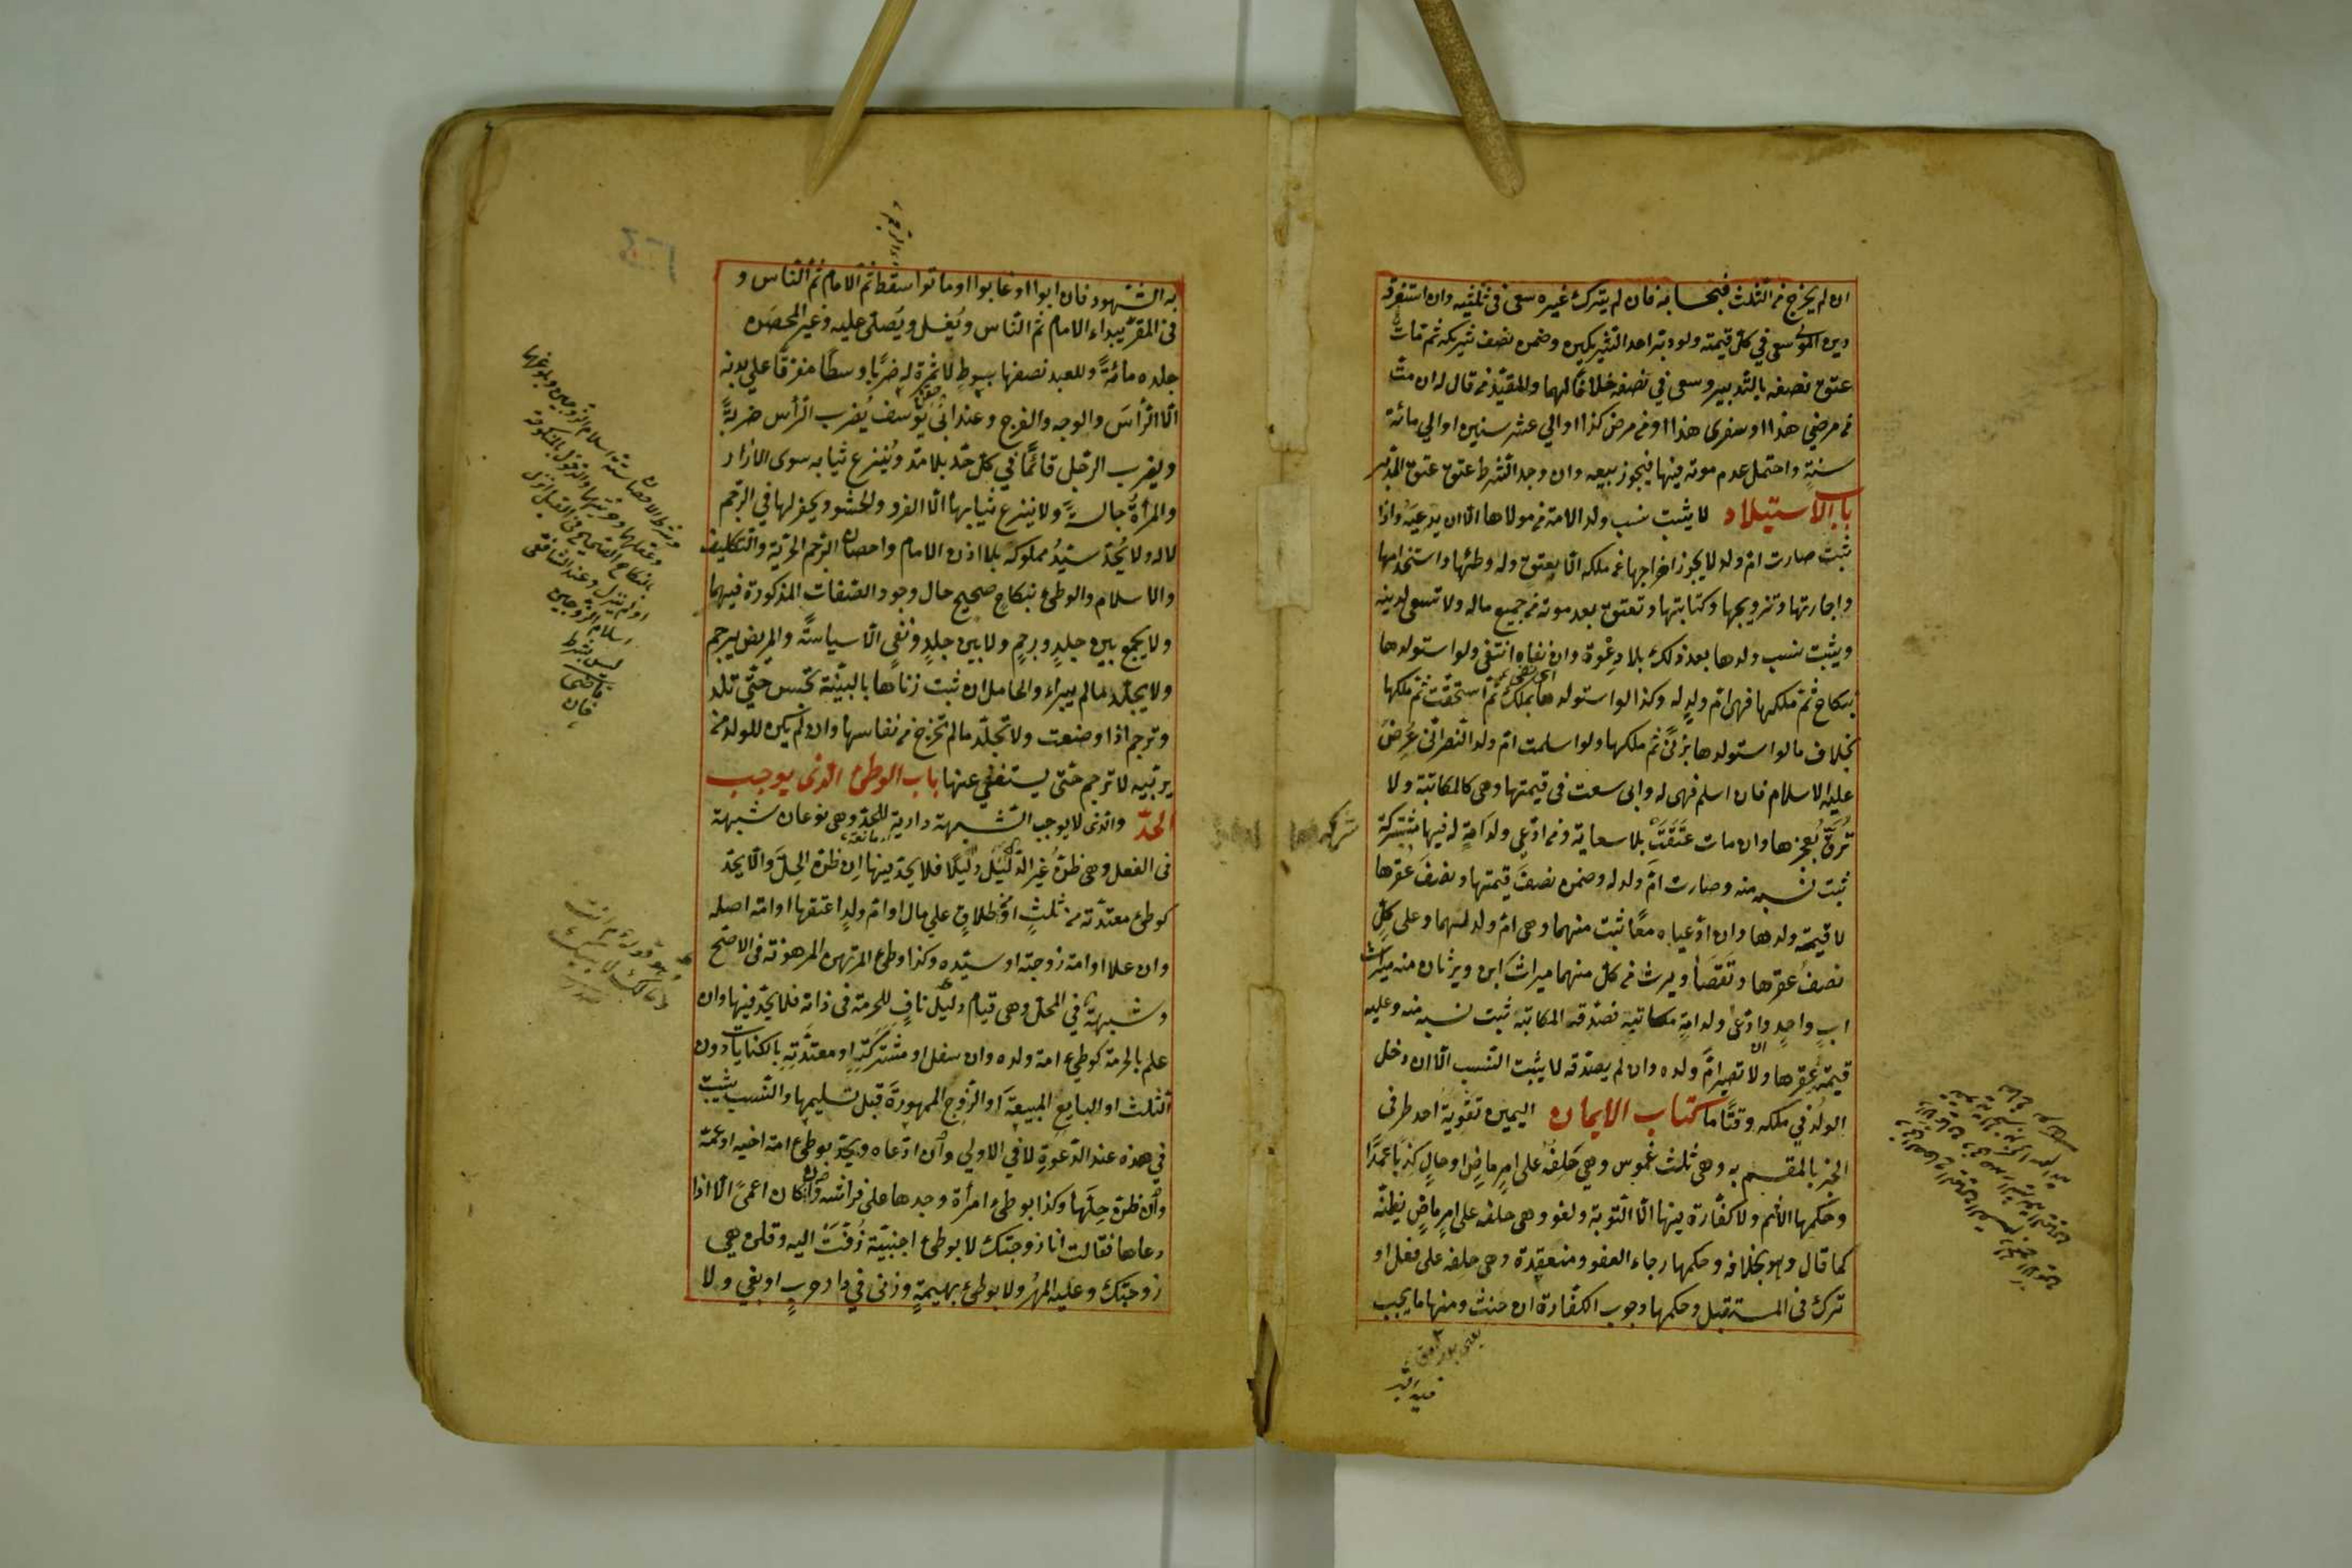 ان لم يخرج من الثلث فبحسابه فان لم يترك غيره سعى في ثلثيه وان استغرقه
دين المولى سعى في كل قيمته ولو دبر احد الشريكين وضمن نصف شريكه ثم مات
عتق نصفه بالتدبير وسعى في نصفه خلافا لهما والمقيد من قال له ان مت
من مرضي هذا او سفري هذا او من مرض كذا او الي عشر سنين او الي مائة
سنة واحتمل عدم موته فيها فيجوز بيعه وان وجد الشرط عتق عتق المدبر
باب الاستيلاد لا يثبت نسب ولد الامة من مولاها الا ان يدعيه واذا
ثبت صارت ام ولد لا يجوز اخراجها عن ملكه الا بعتق وله وطئها واستخدامها
واجارتها وتزويجها وكتابتها وتعتق بعد موته من جميع ماله ولا تسعى لدينه
ويثبت نسب ولدها بعد ذلك بلا دعوة وان نفاه انتفى ولو استولدها
بنكاح ثم ملكها فهى ام ولد له وكذا لو استولدها بملك ثم استحقت ثم ملكها
بخلاف ما لو استولدها بزنى ثم ملكها ولو اسلمت ام ولد النصرانى عرض
عليه الاسلام فان اسلم فهى له وابى سعت فى قيمتها وهى كالمكاتبة ولا
ترق بعجزها وان مات عتقت بلا سعاية ومن ادعى ولد امة له فيها شركة
ثبت نسبه منه وصارت ام ولد له وضمن نصف قيمتها ونصف عقرها
لا قيمة ولدها وان ادعياه معا ثبت منهما وهى ام ولد لهما وعلى كل
نصف عقرها وتقصا ويرث من كل منهما ميراث ابن ويرثان منه ميراث
اب واحد وادعى ولد امة مكاتبه فصدقه المكاتب ثبت نسبه منه وعليه
قيمته وعقرها ولا تصير ام ولده وان لم يصدقه لا يثبت النسب الا ان دخل
الولد في ملكه وقتا ما كتاب الايمان اليمين تقوية احد طرفى
الخبر بالمقسم به وهى ثلث غموس وهي حلفه على امر ماض او حال كذبا عمدا
وحكمها الاثم ولا كفارة فيها الا التوبة ولغو وهى حلفه على امر ماض يظنه
كما قال وهو بخلافه وحكمها رجاء العفو ومنعقدة وهى حلفه على فعل او
ترك فى المستقبل وحكمها وجوب الكفارة ان حنث ومنها ما يجب
به الشهود فان ابوا او غابوا او ماتوا سقط ثم الامام ثم الناس و
فى المقر يبداء الامام ثم الناس ويغسل ويصلى عليه وغير المحصن
جلده مائة وللعبد نصفها بسوط لا ثمرة له ضربا وسطا مفرقا على بدنه
الا الرأس والوجه والفرج وعند ابى يوسف يضرب الرأس ضربة
ويضرب الرجل قائما في كل حد بلا مد وينزع ثيابه سوى الازار
والمرأة جالسة ولا ينزع ثيابها الا الفرو والحشو ويحفر لها في الرجم
لا له ولا يحد سيد مملوكه بلا اذن الامام واحصان الرجم الحرية والتكليف
والاسلام والوطئ بنكاح صحيح حال وجود الصفات المذكورة فيهما
ولا يجمع بين جلد ورجم ولا بين جلد ونفي الا سياسة والمريض يرجم
ولا يجلد مالم يبراء والحامل ان ثبت زناها بالبينة تحبس حتى تلد
وترجم اذا وضعت ولا تجلد مالم تخرج من نفاسها وان لم يكن للولد من
يربيه لا ترجم حتى يستغني عنها باب الوطئ الذى يوجب
الحد والذى لا يوجب الشبهة دارية للحد وهى نوعان شبهة
فى الفعل وهى ظن غير الدليل دليلا فلا يحد فيها ان ظن الحل والا يحد
كوطئ معتدته من ثلث او طلاق علي مال او ام ولد اعتقها او امة اصله
وان علا او امة زوجته او سيده وكذا وطئ المرتهن المرهونة فى الاصح
وشبهة في المحل وهى قيام دليل ناف للحرمة فى ذاته فلا يحد فيها وان
علم بالحرمة كوطئ امة ولده وان سفل او مشتركة او معتدته بالكنايات دون
الثلث او البايع المبيعة او الزوج الممهورة قبل تسليمها والنسب يثبت
في هذه عند الدعوة لا في الاولي وان ادعاه ويحد بوطئ امة اخيه او عمه
وان ظن حلها وكذا بوطئ امرأة وجدها على فراشه وان كان اعمى الا اذا
دعاها فقالت انا زوجتك لا بوطئ اجنبية زفت اليه وقلن هي
زوجتك وعليه المهر ولا بوطئ بهيمة وزنى في دار حرب او بغي ولا